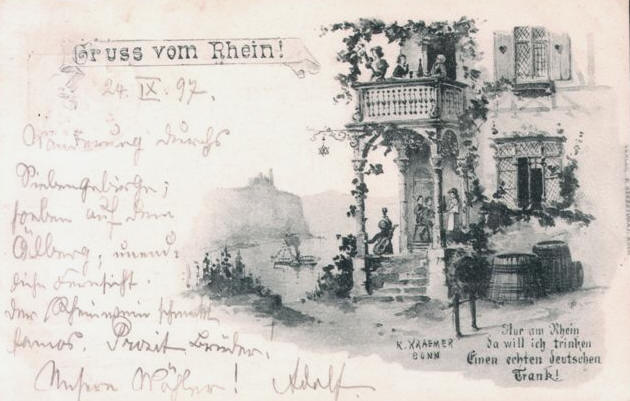 Gruss vom Rhein!
24. IX. 97.
Wanderung durchs
Siebengebirge;
soeben auf dem
Ölberg, unend-
liche Fernsicht.
Der Rheinwein schmeckt
famos. Prosit Brüder!
Unsere Adolf.
K. KRAEMER
BONN
Nur am Rhein
da will ich trinken
Einen echten deutschen
Trank!